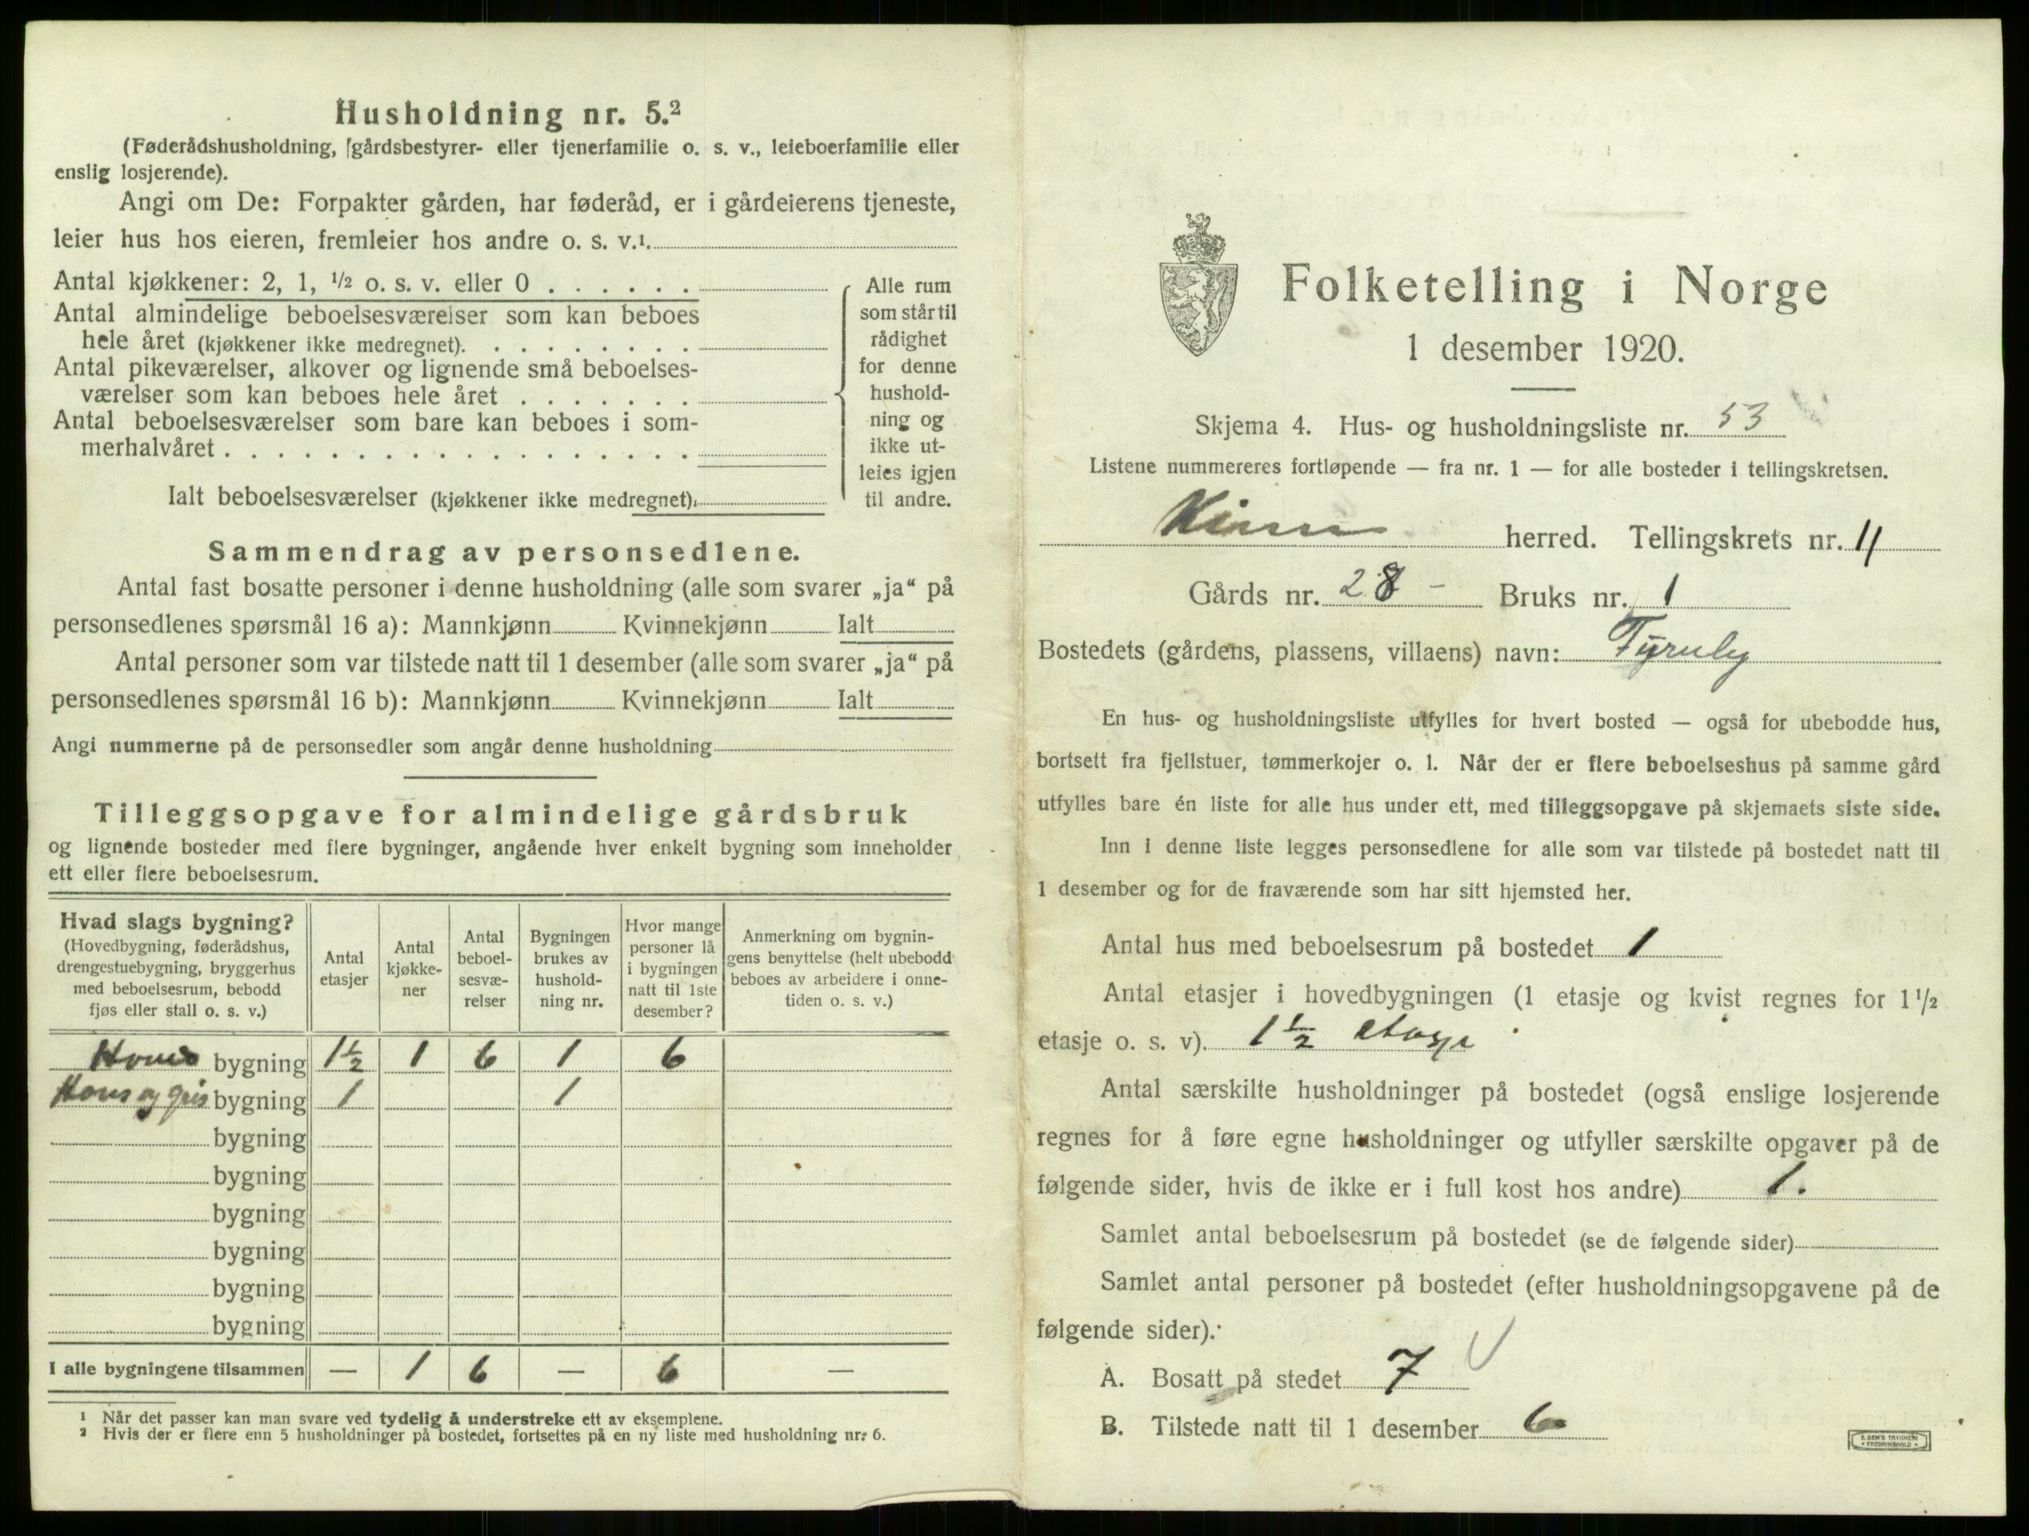 Husholdning nr. 5.²
(Føderådshusholdning, gårdsbestyrer- eller tjenerfamilie o. s. v., leieboerfamilie eller
enslig losjerende).
Angi om De: Forpakter gården, har føderåd, er i gårdeierens tjeneste,
leier hus hos eieren, fremleier hos andre o. s. v.¹
Antal kjøkkener: 2, 1, ½ o. s. v. eller 0
Antal almindelige beboelsesværelser som kan beboes
hele året (kjøkkener ikke medregnet).
Antal pikeværelser, alkover og lignende små beboelses-
værelser som kan beboes hele året
Antal beboelsesværelser som bare kan beboes i som-
merhalvåret
Ialt beboelsesværelser (kjøkkener ikke medregnet).
Alle rum
som står til
rådighet
for denne
hushold-
ning og
ikke ut-
leies igjen
til andre.
Sammendrag av personsedlene.
Antal fast bosatte personer i denne husholdning (alle som svarer „ja“ på
personsedlenes spørsmål 16 a): Mannkjønn Kvinnekjønn Ialt
Antal personer som var tilstede natt til 1 desember (alle som svarer „ja“ på
personsedlenes spørsmål 16 b): Mannkjønn Kvinnekjønn Ialt
Angi nummerne på de personsedler som angår denne husholdning
Tilleggsopgave for almindelige gårdsbruk
og lignende bosteder med flere bygninger, angående hver enkelt bygning som inneholder
ett eller flere beboelsesrum.
Hvad slags bygning?
(Hovedbygning, føderådshus,
drengestuebygning, bryggerhus
med beboelsesrum, bebodd
fjøs eller stall o. s. v.)
Antal
etasjer
Antal
kjøkke-
ner
Antal
beboel-
sesvæ-
relser
Bygningen
brukes av
hushold-
ning nr.
Hvor mange
personer lå
i bygningen
natt til 1ste
desember?
Anmerkning om bygnin-
gens benyttelse (helt ubebodd
beboes av arbeidere i onne-
tiden o. s. v.)
bygning 1½ 1 6 1 6
Hons og gris bygning 1 1
bygning
bygning
bygning
bygning
bygning
bygning
I alle bygningene tilsammen — 1 6 — 6 —
¹ Når det passer kan man svare ved tydelig å understreke ett av eksemplene.
² Hvis der er flere enn 5 husholdninger på bostedet, fortsettes på en ny liste med husholdning nr. 6.
Folketelling i Norge
1 desember 1920.
Skjema 4. Hus- og husholdningsliste nr. 53
Listene nummereres fortløpende — fra nr. 1 — for alle bosteder i tellingskretsen.
Kinn herred. Tellingskrets nr. 11
Gårds nr. 28 - Bruks nr. 1
Bostedets (gårdens, plassens, villaens) navn:
En hus- og husholdningsliste utfylles for hvert bosted — også for ubebodde hus,
bortsett fra fjellstuer, tømmerkojer o. l. Når der er flere beboelseshus på samme gård
utfylles bare én liste for alle hus under ett, med tilleggsopgave på skjemaets siste side.
Inn i denne liste legges personsedlene for alle som var tilstede på bostedet natt til
1 desember og for de fraværende som har sitt hjemsted her.
Antal hus med beboelsesrum på bostedet 1
Antal etasjer i hovedbygningen (1 etasje og kvist regnes for 1½
etasje o. s. v). 1½ etasje
Antal særskilte husholdninger på bostedet (også enslige losjerende
regnes for å føre egne husholdninger og utfyller særskilte opgaver på de
følgende sider, hvis de ikke er i full kost hos andre) 1.
Samlet antal beboelsesrum på bostedet (se de følgende sider)
Samlet antal personer på bostedet (efter husholdningsopgavene på de
følgende sider).
A. Bosatt på stedet 7
B. Tilstede natt til 1 desember 6
E. SEM'S TRYKKERI
FREDRIKSHALD